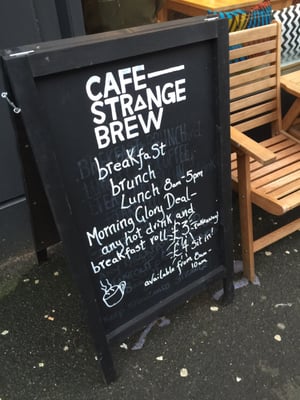 CAFE
STRANGE
BREW
breakfast
brunch
Lunch 8am-5pm
Morning Glory Deal-
any hot drink and
breakfast roll-£3-Takeaway
-£4 Sit in!
available from 8am-
10am